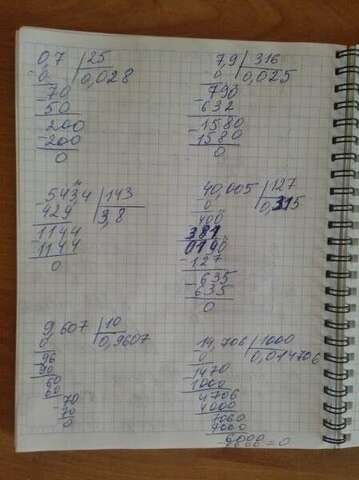 0,7 | 25
0 | 0,028
-70
50
-200
200
0
7,9 | 316
0 | 0,025
-790
632
-1580
1580
0
-543,4 | 143
429 | 3,8
-1144
1144
0
40,005 | 127
0 | 0,315
400
381
0190
-127
-635
635
0
9,607 | 10
0 | 0,9607
96
90
60
60
-70
70
0
14,706 | 1000
0 | 0,014706
1470
1000
4706
4000
7060
7000
6000 = 0